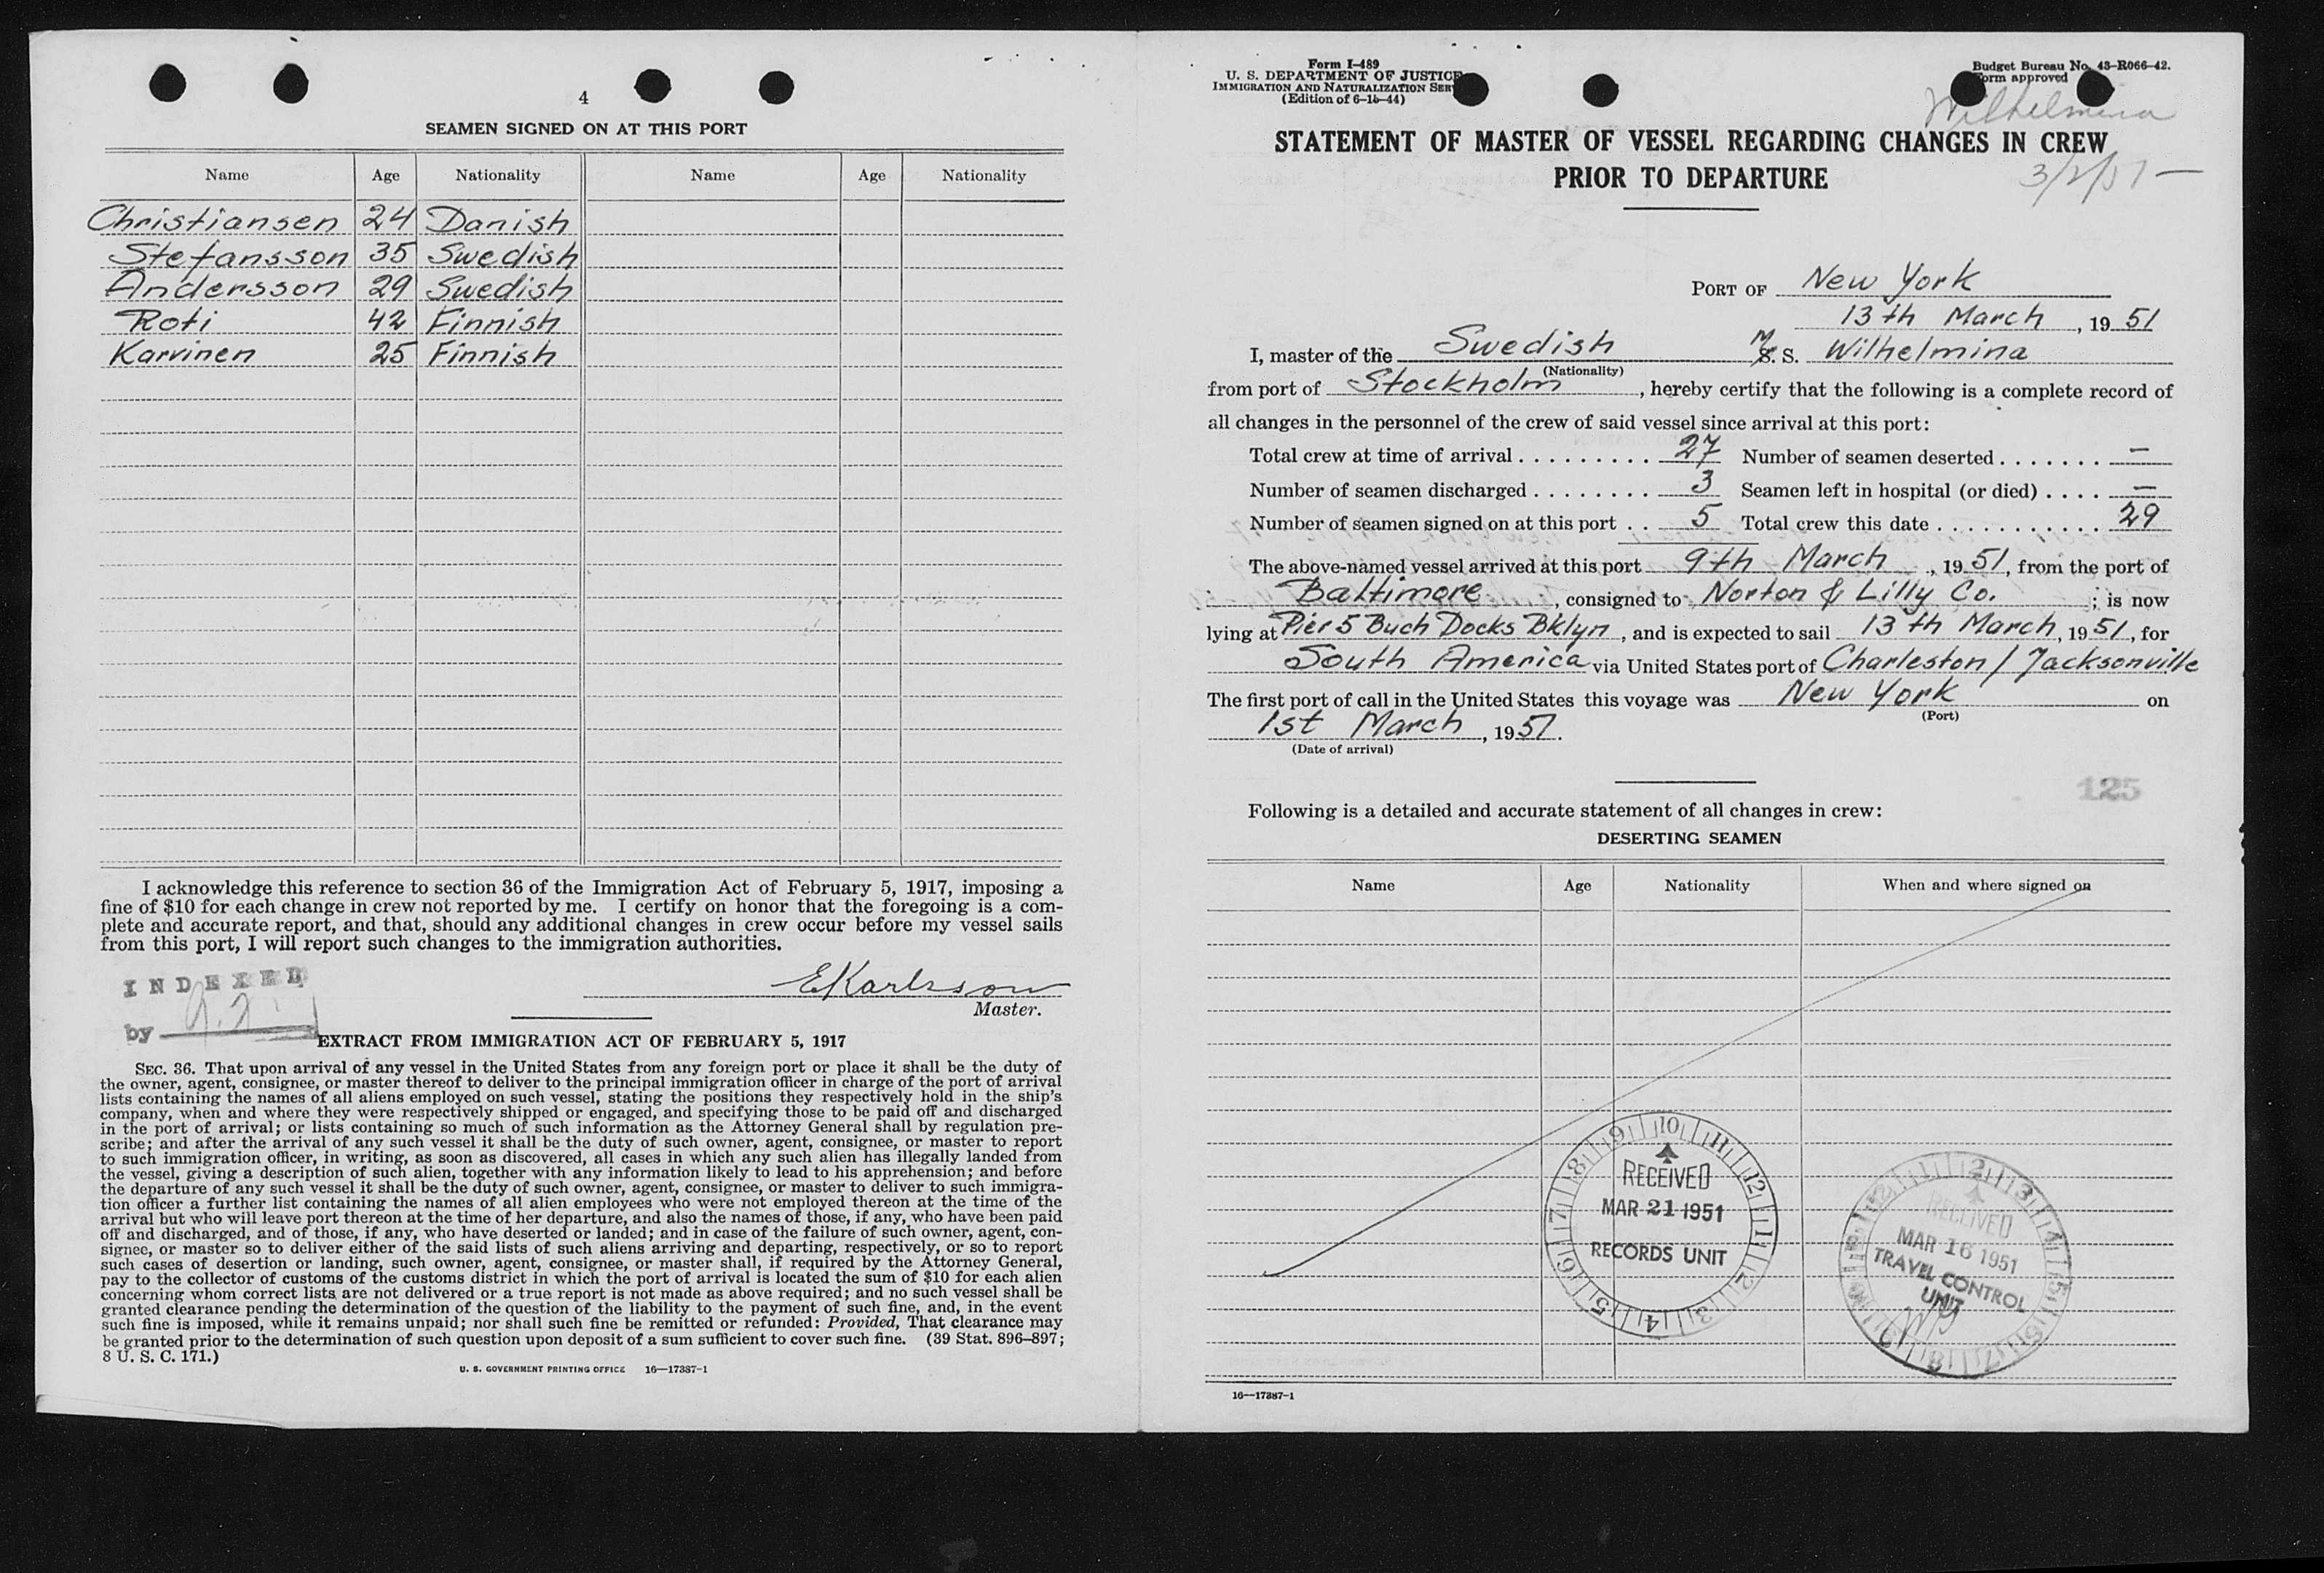 4
SEAMEN SIGNED ON AT THIS PORT
Name Age Nationality Name Age Nationality
Christiansen 24 Danish
Stefansson 35 Swedish
Andersson 29 Swedish
Roti 42 Finnish
Karvinen 25 Finnish
I acknowledge this reference to section 36 of the Immigration Act of February 5, 1917, imposing a
fine of $10 for each change in crew not reported by me. I certify on honor that the foregoing is a com-
plete and accurate report, and that, should any additional changes in crew occur before my vessel sails
from this port, I will report such changes to the immigration authorities.
INDEXED
by
EKarlsson
Master.
EXTRACT FROM IMMIGRATION ACT OF FEBRUARY 5, 1917
SEC. 36. That upon arrival of any vessel in the United States from any foreign port or place it shall be the duty of
the owner, agent, consignee, or master thereof to deliver to the principal immigration officer in charge of the port of arrival
lists containing the names of all aliens employed on such vessel, stating the positions they respectively hold in the ship's
company, when and where they were respectively shipped or engaged, and specifying those to be paid off and discharged
in the port of arrival; or lists containing so much of such information as the Attorney General shall by regulation pre-
scribe; and after the arrival of any such vessel it shall be the duty of such owner, agent, consignee, or master to report
to such immigration officer, in writing, as soon as discovered, all cases in which any such alien has illegally landed from
the vessel, giving a description of such alien, together with any information likely to lead to his apprehension; and before
the departure of any such vessel it shall be the duty of such owner, agent, consignee, or master to deliver to such immigra-
tion officer a further list containing the names of all alien employees who were not employed thereon at the time of the
arrival but who will leave port thereon at the time of her departure, and also the names of those, if any, who have been paid
off and discharged, and of those, if any, who have deserted or landed; and in case of the failure of such owner, agent, con-
signee, or master so to deliver either of the said lists of such aliens arriving and departing, respectively, or so to report
such cases of desertion or landing, such owner, agent, consignee, or master shall, if required by the Attorney General,
pay to the collector of customs of the customs district in which the port of arrival is located the sum of $10 for each alien
concerning whom correct lists are not delivered or a true report is not made as above required; and no such vessel shall be
granted clearance pending the determination of the question of the liability to the payment of such fine, and, in the event
such fine is imposed, while it remains unpaid; nor shall such fine be remitted or refunded: Provided, That clearance may
be granted prior to the determination of such question upon deposit of a sum sufficient to cover such fine. (39 Stat. 896-897;
8 U. S. C. 171.)
U. S. GOVERNMENT PRINTING OFFICE 16—17387-1
Form I-489
U. S. DEPARTMENT OF JUSTICE
IMMIGRATION AND NATURALIZATION SER
(Edition of 6-15-44)
Budget Bureau No. 43-R066-42.
Form approved
Wilhelmina
STATEMENT OF MASTER OF VESSEL REGARDING CHANGES IN CREW
PRIOR TO DEPARTURE
PORT OF New York
13th March, 1951
I, master of the Swedish M. S. Wilhelmina
(Nationality)
from port of Stockholm, hereby certify that the following is a complete record of
all changes in the personnel of the crew of said vessel since arrival at this port:
Total crew at time of arrival . . . . . . . . . 27 Number of seamen deserted . . . . . . . —
Number of seamen discharged . . . . . . . . 3 Seamen left in hospital (or died) . . . . —
Number of seamen signed on at this port . . 5 Total crew this date . . . . . . . . . . . 29
The above-named vessel arrived at this port 9th March, 1951, from the port of
Baltimore, consigned to Norton & Lilly Co. ; is now
lying at Pier 5 Buch Docks Bklyn, and is expected to sail 13th March, 1951, for
South America via United States port of Charleston / Jacksonville
The first port of call in the United States this voyage was New York on
(Port)
1st March, 1951.
(Date of arrival)
125
Following is a detailed and accurate statement of all changes in crew:
DESERTING SEAMEN
Name Age Nationality When and where signed on
RECEIVED
MAR 21 1951
RECORDS UNIT
RECEIVED
MAR 16 1951
TRAVEL CONTROL
UNIT
16—17387-1